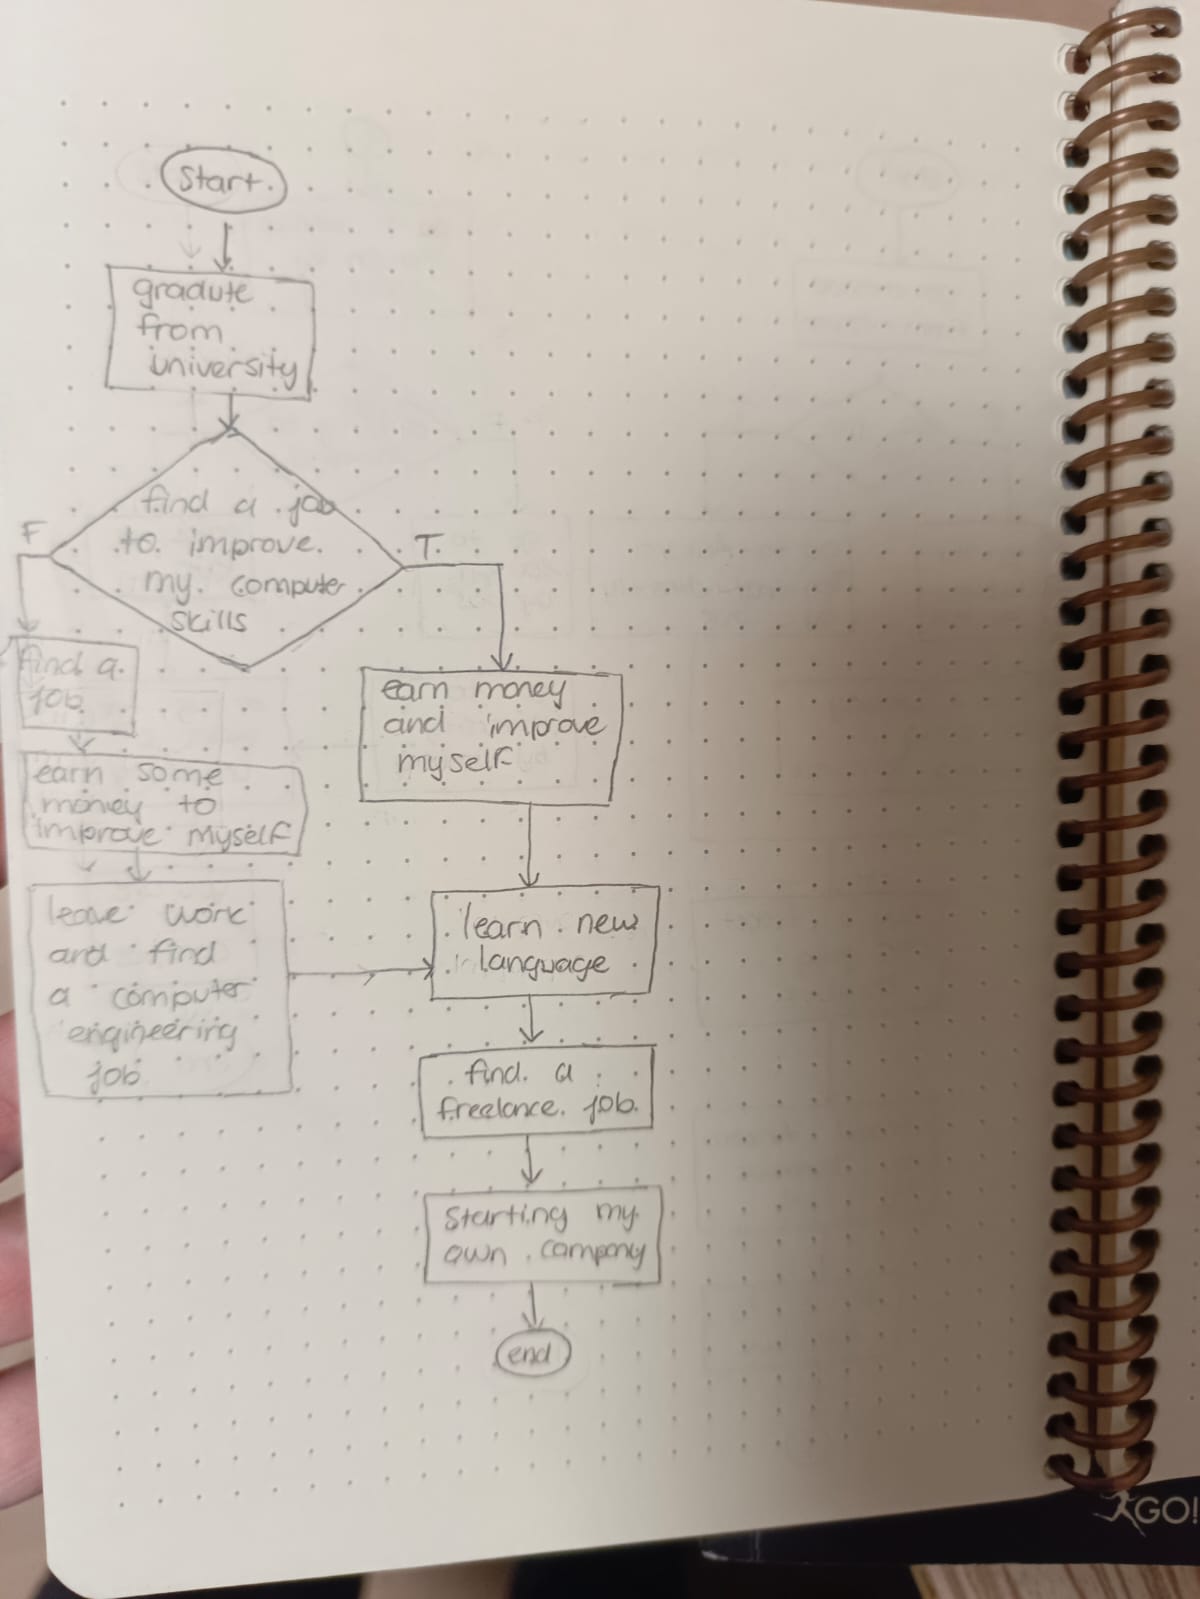 Start.
gradute
from
university
find a job
to improve
my computer
skills
F
T
find a
job
earn some
money to
improve myself
leave work
and find
a computer
engineering
job
earn money
and improve
myself
learn new
language
find a
freelance job.
Starting my
own company
end
GO!